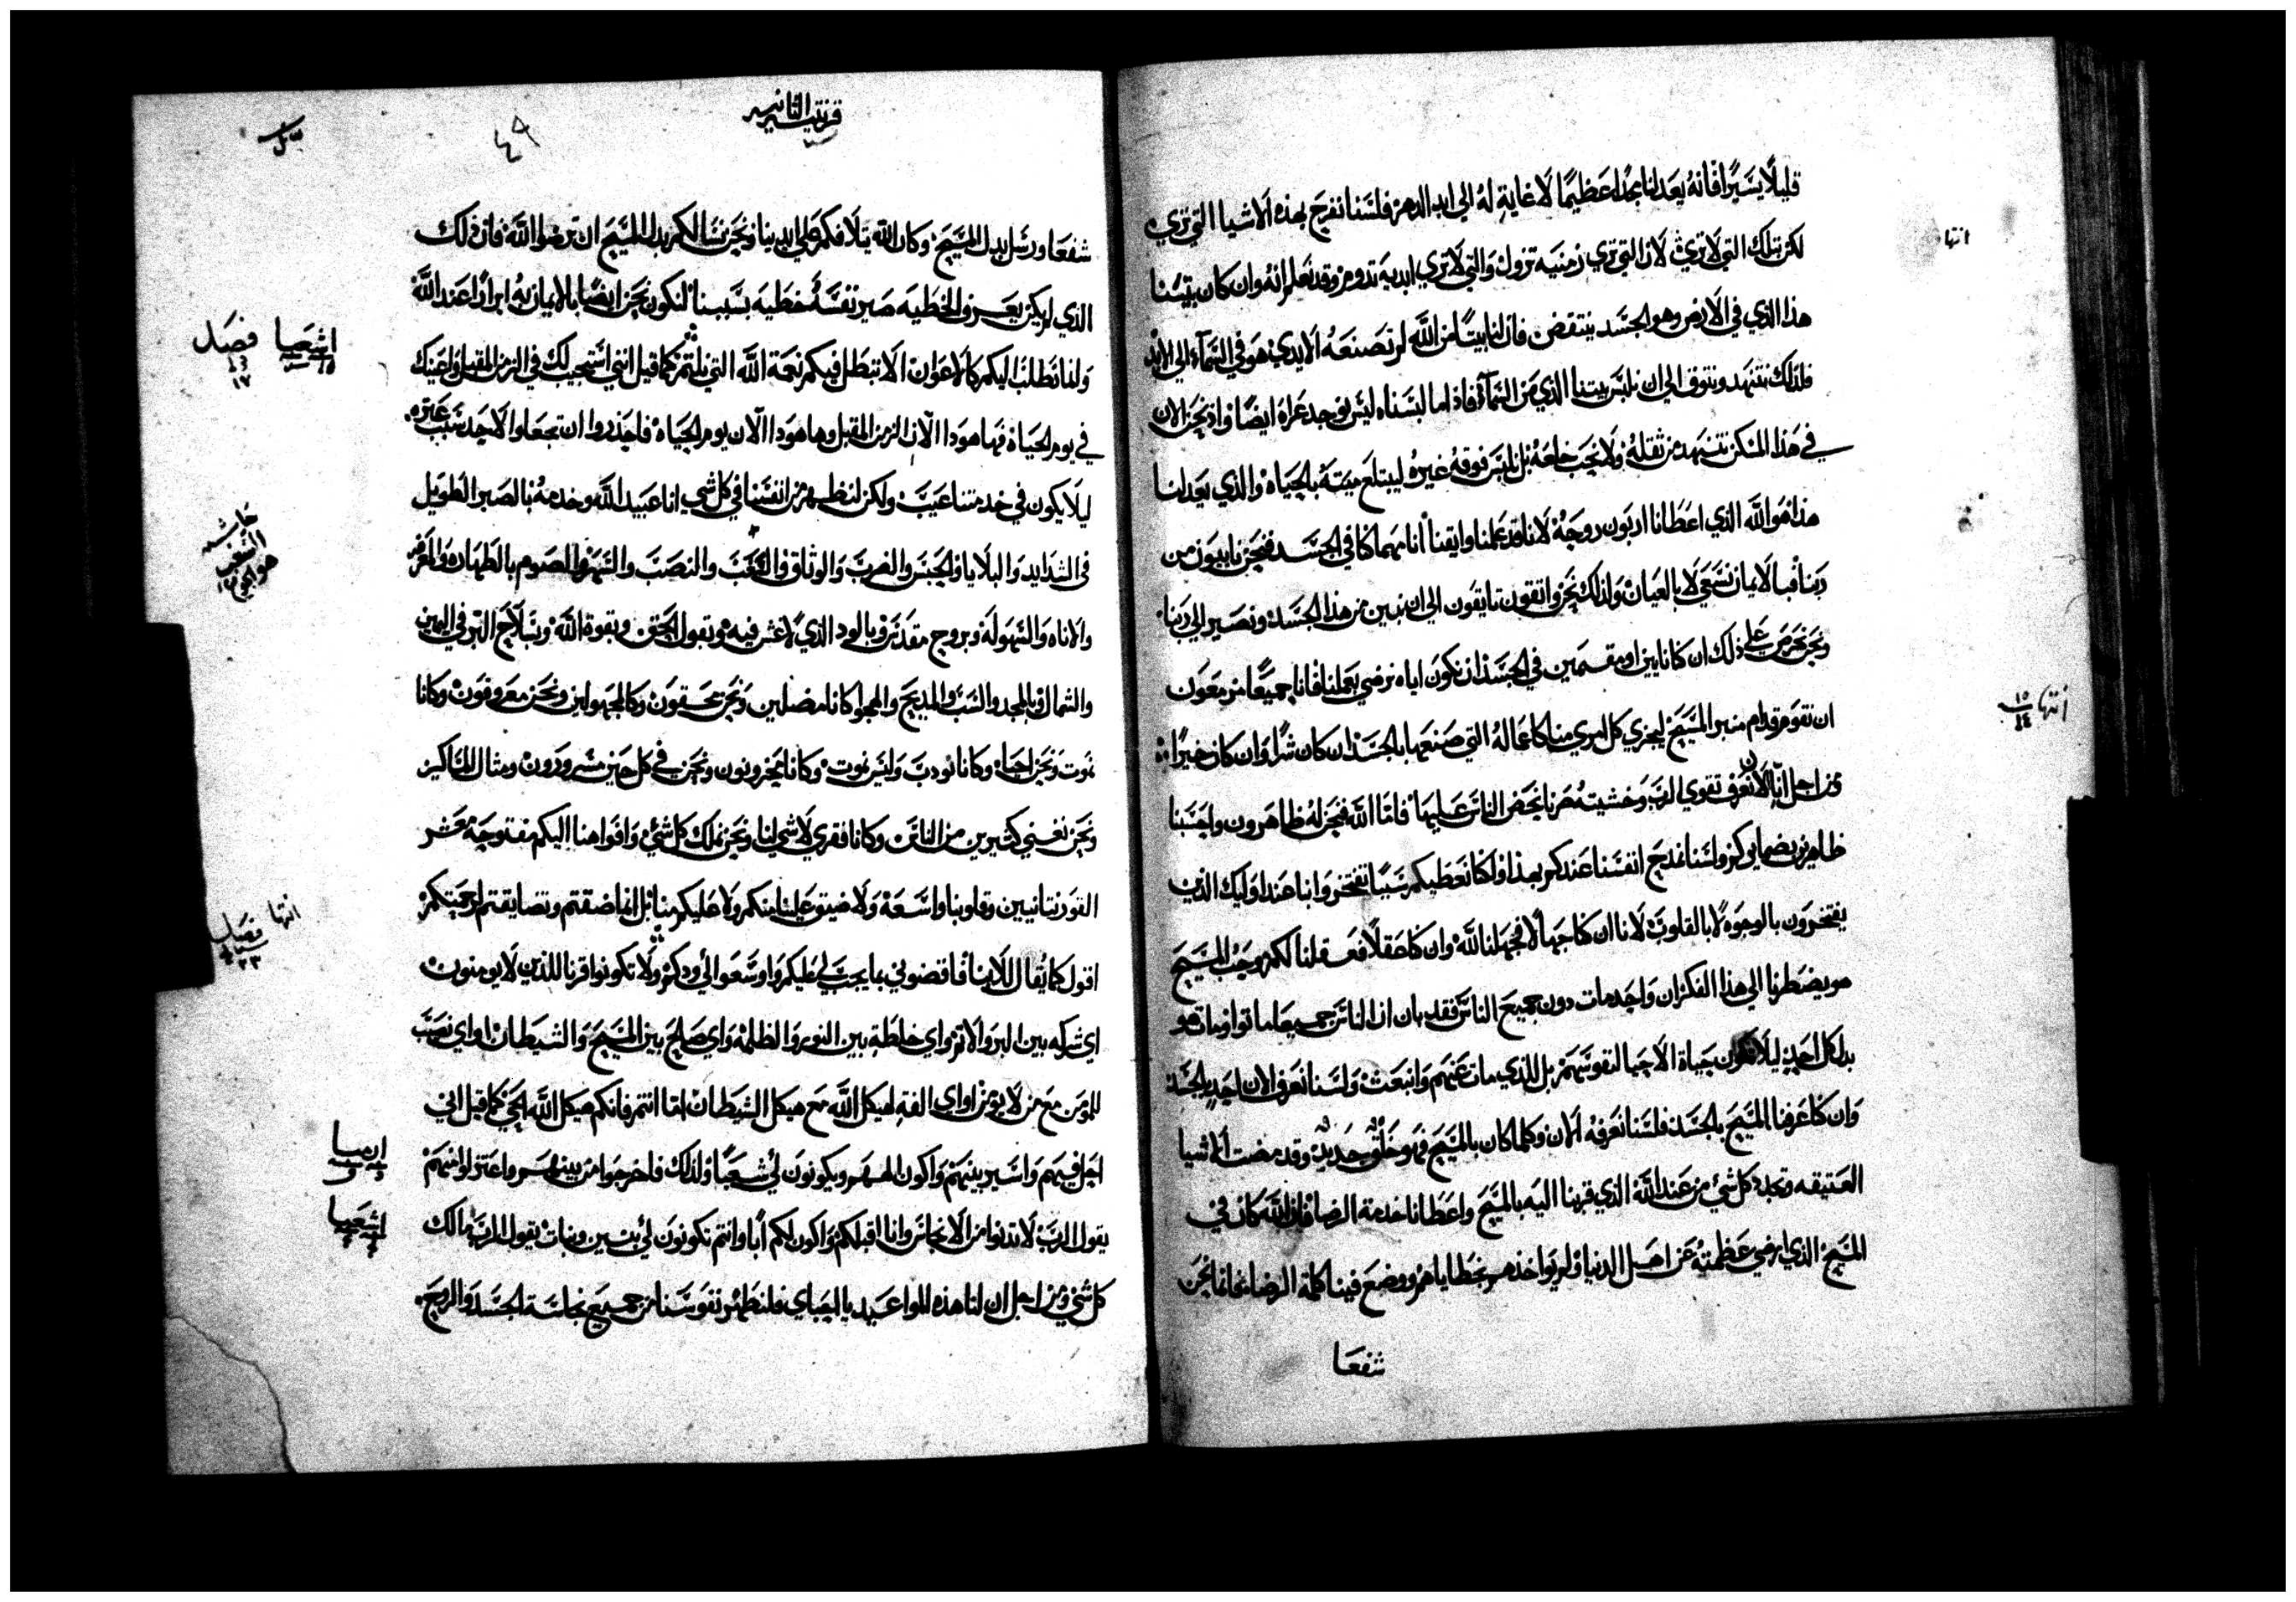 قليلًا يسيرًا فانه يعد لنا مجدًا عظيمًا لا غاية له الي ابد الدهر فلسنا نفرح بهذه الاشيا التي تري
لكن بتلك التي لا تري لان التي تري زمنيه تزول والتي لا تري ابديه تدوم وقد نعلم انه وان كان بيتنا
هذا الذي في الارض وهو الجسد ينتقض فان لنا بيتًا من الله لم تصنعه الايدي هو في السمآء الي الابد
فلذلك نتنهد ونتوق الي ان نلبس بيتنا الذي من السمآء فاذا ما لبسناه ليس نوجد عراه ايضًا واذ نحن الان
في هذا المسكن نتنهد من ثقله ولا نحب خلعه بل نلبس فوقه غيره ليبتلع ميته بالحياه والذي يعد لنا
هذا هو الله الذي اعطانا اربون روحه لانا قد علمنا وايقنا انا مهما كنا في الجسد فنحن نايبون من
ربنا فبالايمان نسعي لا بالعيان ولذلك نحن واثقون تايقون الي ان نبين من هذا الجسد ونصير الي ربنا
ونحن نحرص علي ذلك ان كنا نايين او مقيمين في الجسد ان نكون اياه نرضي بعملنا فانا جميعًا مزمعون
ان نقوم قدام منبر المسيح ليجزي كل امري منا كاعماله التي صنعها بالجسد ان كان شرًا وان كان خيرًا
فمن اجل انا الان نعرف تقوي الرب وخشيته صرنا نحض الناس عليها فاما الله فنحن له ظاهرون واحسبنا
ظاهرين بضمايركم ولسنا نمدح انفسنا عندكم بهذا ولكنا نعطيكم سببًا تفتخروا بنا عند اوليك الذين
يفتخرون بالوجوه لا بالقلوب لانا ان كنا جهالًا فجهلنا لله وان كنا عقلًا فعقلنا لكم وحب المسيح
هو يضطرنا الي هذا الفكر ان واحد مات دون جميع الناس فقد بان ان الناس جميعا ماتوا ومات هو
بدل كل احد ليلا تكون حياة الاحيا لنفوسهم بل للذي مات عنهم وانبعث ولسنا نعرف الان احد بالجسد
وان كنا عرفنا المسيح بالجسد فلسنا نعرفه الان وكلما كان بالمسيح فهو خلق جديد وقد مضت الاشيا
العتيقه وتجدد كل شي من عند الله الذي قربنا اليه بالمسيح واعطانا خدمة الرضا فان الله كان في
المسيح الذي ارضي عظمته عن اهل الدنيا ولم يواخذهم بخطاياهم ووضع فينا كلمة الرضا فانما نحن
شفعا
انتها
انتها ١٥
١٤
قرنتيه الثانيه
٤٩
شفعا ورسل بدل المسيح وكان الله يتلافكم علي ايدينا ونحن نسالكم بدل المسيح ان ترضوا الله فان ذلك
الذي لم يكن يعرف الخطيه صير نفسه خطيه بسببنا لنكون نحن ايضًا بالايمان به ابرارًا عند الله
وانا نطلب اليكم كالاعوان الا تبطل فيكم نعمة الله التي نلتم كما قيل انني استجيب لك في الزمن المقبل واعينك
في يوم الحياه فها هوذا الان الزمن المقبل وها هوذا الان يوم الحياه فاحذروا ان تجعلوا لاحد سبب عتره
ليلا يكون في خدمتنا عيب ولكن لنظهر من انفسنا في كل شي انا عبيد الله وخدمه بالصبر الطويل
في الشدايد والبلايا والحبس والضرب والوثاق والتعب والنصب والسهر والصوم بالطهاره والمعرفه
والاناه والسهوله وبروح مقدس وبالود الذي لا غش فيه وبقول الحق وبقوة الله وبسلاح البر في اليمين
والشمال وبالمجد والسب والمديح والهجو كانا مضلين ونحن محقون وكالمجهولين ونحن معروفون وكانا
نموت ونحن احيا وكانا نودب وليس نموت وكانا محزونون ونحن في كل حين مسرورون ومثال المساكين
ونحن نغني كثيرين من الناس وكانا فقري لا شي لنا ونحن نملك كل شي وافواهنا اليكم مفتوحه معشر
القورنتانيين وقلوبنا واسعه ولا ضيق علينا منكم ولا عليكم منا بل انما ضقتم وتضايقتم لرحمتكم
اقول كما يقال للابنا فاقضوني بما يجب لي عليكم واوسعوا لي ودكم ولا تكونوا قرنا للذين لا يومنون
اي شركه بين البر والاثم واي خلطة بين النور والظلمه واي صلح بين المسيح والشيطان او اي نصيب
للمومن مع من لا يومن او اي الفه لهيكل الله مع هيكل الشيطان اما انتم فانكم هيكل الله الحي كما قيل اني
احل فيهم واسير بينهم واكون الههم ويكونون لي شعبًا ولذلك فاخرجوا من بينهم واعتزلوا منهم
يقول الرب لا تدنوا من الانجاس وانا اقبلكم واكون لكم ابًا وانتم تكونون لي بنين وبنات يقول الرب مالك
كل شي ومن اجل ان لنا هذه المواعيد يا احباي فلنطهر نفوسنا من جميع نجاسة الجسد والروح
اشعيا فصل
١٧
حاشيه
انتها فصل
٢٣
ارميا
اشعيا